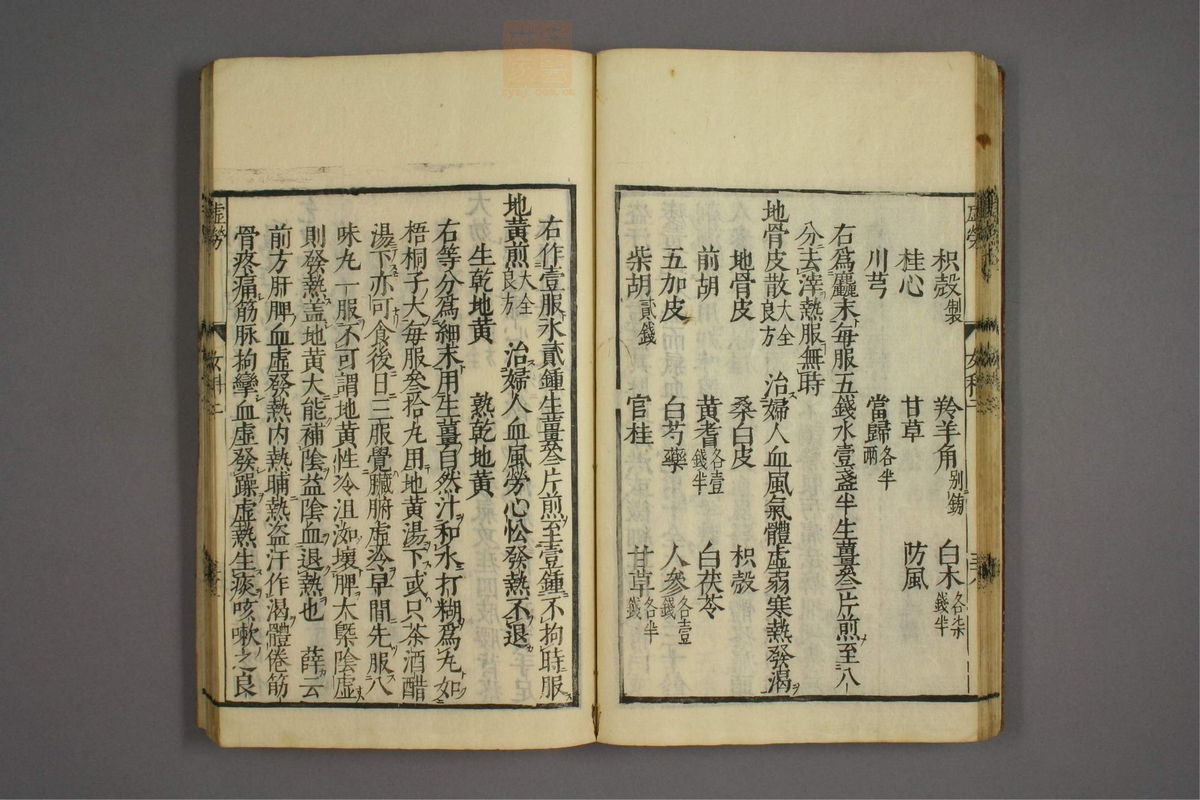 枳殻製 羚羊角別鎊 白朮各柒錢半
桂心 甘草 防風
川芎 當歸各半兩
右爲麤末毎服五錢水壹盞半生薑叄片煎至八
分去滓熱服無時
地骨皮散大全良方 治婦人血風氣體虛弱寒熱發渴
地骨皮 桑白皮 枳殻
前胡 黃耆各壹錢半 白茯苓
五加皮 白芍藥 人參各壹錢
柴胡貳錢 官桂 甘草各半錢
右作壹服水貳鍾生薑叄片煎至壹鍾不拘時服
地黃煎大全良方 治婦人血風勞心忪發熱不退
生乾地黃 熟乾地黃
右等分爲細末用生薑自然汁和水打糊爲丸如
梧桐子大毎服叄拾丸用地黃湯下或只茶酒醋
湯下亦可食後日三服覺臟腑虛冷早間先服八
味丸一服不可謂地黃性冷沮洳壞脾太槩陰虛
則發熱盖地黃大能補陰益陰血退熱也 薛云
前方肝脾血虛發熱内熱晡熱盜汗作渴體倦筋
骨疼痛筋脉拘攣血虛發躁虛熱生痰咳嗽之良
虛勞 女科二